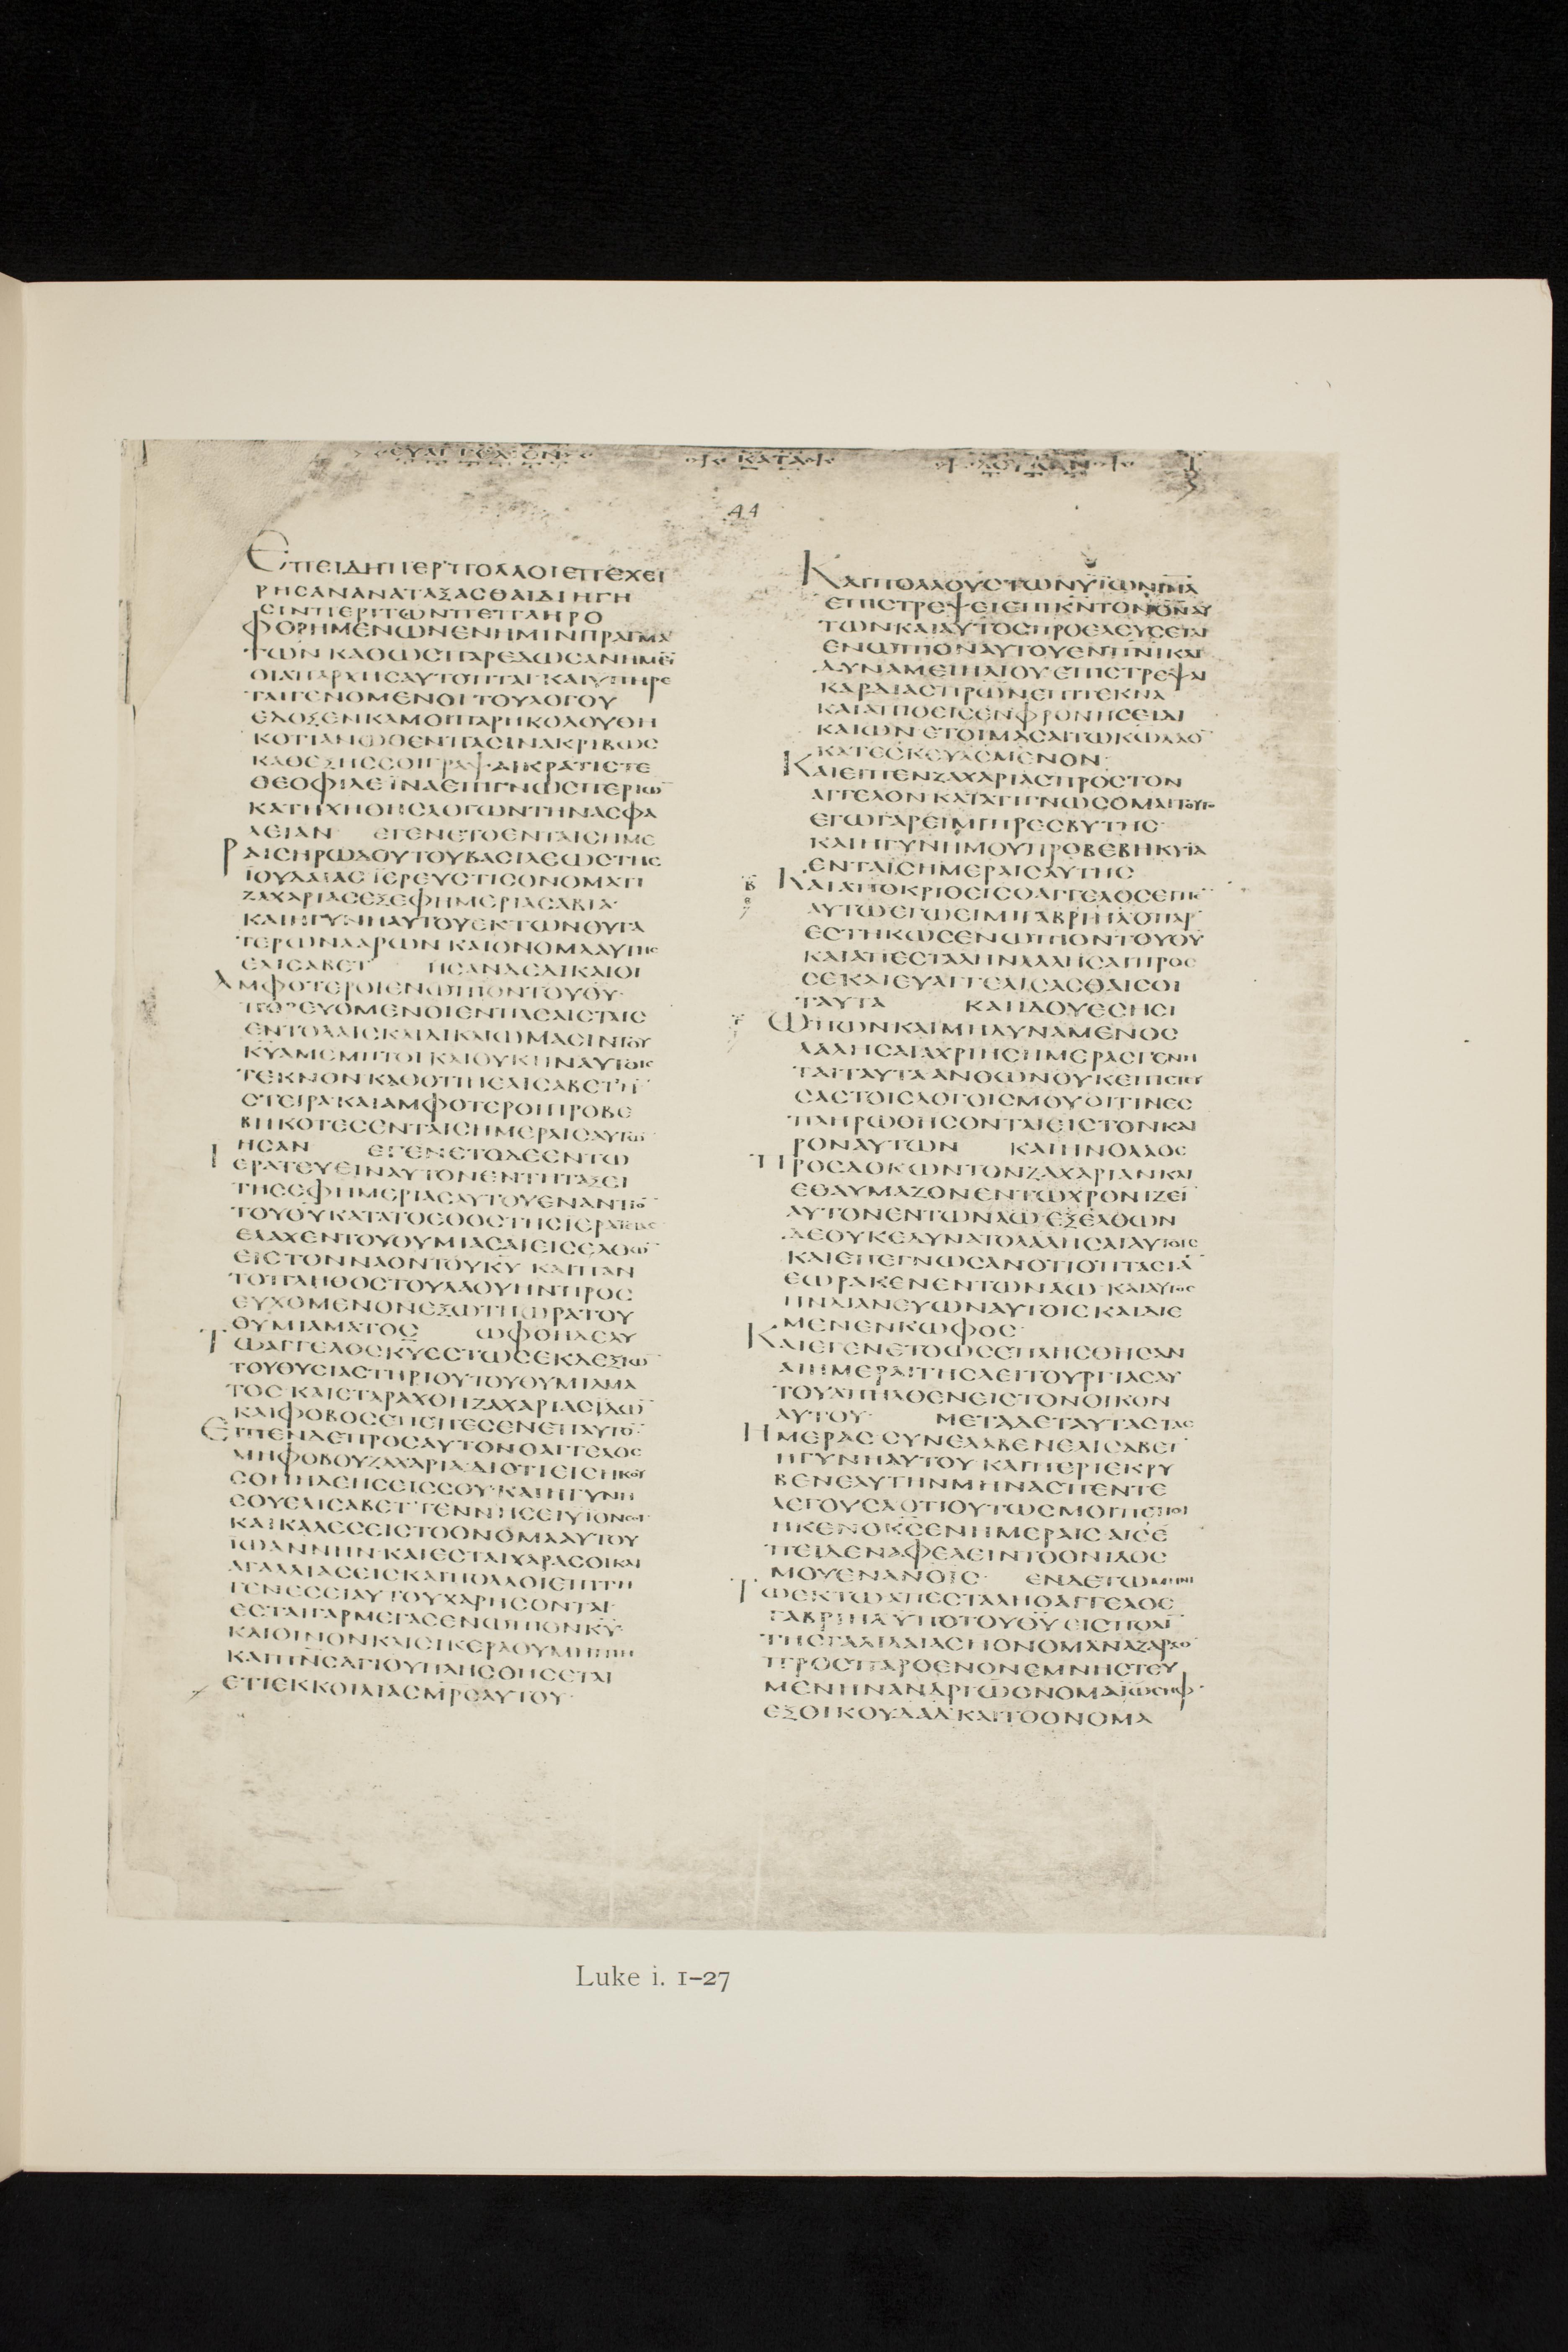 ΕΥΑΓΓΕΛΙΟΝ ΚΑΤΑ ΛΟΥΚΑΝ
44
ΕΠΕΙΔΗΠΕΡΠΟΛΛΟΙΕΠΕΧΕΙ
ΡΗϹΑΝΑΝΑΤΑΞΑϹΘΑΙΔΙΗΓΗ
ϹΙΝΠΕΡΙΤΩΝΠΕΠΛΗΡΟ
ΦΟΡΗΜΕΝΩΝΕΝΗΜΙΝΠΡΑΓΜΑ
ΤΩΝΚΑΘΩϹΠΑΡΕΔΩϹΑΝΗΜΕΙ
ΟΙΑΠΑΡΧΗϹΑΥΤΟΠΤΑΙΚΑΙΥΠΗΡΕ
ΤΑΙΓΕΝΟΜΕΝΟΙΤΟΥΛΟΓΟΥ
ΕΔΟΞΕΝΚΑΜΟΙΠΑΡΗΚΟΛΟΥΘΗ
ΚΟΤΙΑΝΩΘΕΝΠΑϹΙΝΑΚΡΙΒΩϹ
ΚΑΘΕΞΗϹϹΟΙΓΡΑΨΑΙΚΡΑΤΙϹΤΕ
ΘΕΟΦΙΛΕΪΝΑΕΠΙΓΝΩϹΠΕΡΙΩ̅
ΚΑΤΗΧΗΘΗϹΛΟΓΩΝΤΗΝΑϹΦΑ
ΛΕΙΑΝ ΕΓΕΝΕΤΟΕΝΤΑΙϹΗΜΕ
ΡΑΙϹΗΡΩΔΟΥΤΟΥΒΑϹΙΛΕΩϹΤΗϹ
ΪΟΥΔΑΙΑϹΪΕΡΕΥϹΤΙϹΟΝΟΜΑΤΙ
ΖΑΧΑΡΙΑϹΕΞΕΦΗΜΕΡΙΑϹΑΒΙΑ·
ΚΑΙΗΓΥΝΗΑΥΤΟΥΕΚΤΩΝΘΥΓΑ
ΤΕΡΩΝΑΑΡΩΝΚΑΙΟΝΟΜΑΑΥΤΗϹ
ΕΛΙϹΑΒΕΤ ΗϹΑΝΔΕΔΙΚΑΙΟΙ
ΑΜΦΟΤΕΡΟΙΕΝΩΠΙΟΝΤΟΥΘ̅Υ̅·
ΠΟΡΕΥΟΜΕΝΟΙΕΝΠΑϹΑΙϹΤΑΙϹ
ΕΝΤΟΛΑΙϹΚΑΙΔΙΚΑΙΩΜΑϹΙΝΤΟΥ
Κ̅Υ̅ΑΜΕΜΠΤΟΙΚΑΙΟΥΚΗΝΑΥΤΟΙϹ
ΤΕΚΝΟΝΚΑΘΟΤΙΗΕΛΙϹΑΒΕΤΗ̅
ϹΤΕΙΡΑΚΑΙΑΜΦΟΤΕΡΟΙΠΡΟΒΕ
ΒΗΚΟΤΕϹΕΝΤΑΙϹΗΜΕΡΑΙϹΑΥΤΩ̅
ΗϹΑΝ ΕΓΕΝΕΤΟΔΕΕΝΤΩ
ΪΕΡΑΤΕΥΕΙΝΑΥΤΟΝΕΝΤΗΤΑΞΕΙ
ΤΗϹΕΦΗΜΕΡΙΑϹΑΥΤΟΥΕΝΑΝΤΙΟ̅
ΤΟΥΘ̅Υ̅ΚΑΤΑΤΟΕΘΟϹΤΗϹΙΕΡΑΤΕΙΑϹ
ΕΛΑΧΕΝΤΟΥΘΥΜΙΑϹΑΙΕΙϹΕΛΘΩ̅
ΕΙϹΤΟΝΝΑΟΝΤΟΥΚ̅Υ̅ ΚΑΙΠΑΝ
ΤΟΠΛΗΘΟϹΤΟΥΛΑΟΥΗΝΠΡΟϹ
ΕΥΧΟΜΕΝΟΝΕΞΩΤΗΩΡΑΤΟΥ
ΘΥΜΙΑΜΑΤΟϹ ΩΦΘΗΔΕΑΥ
ΤΩΑΓΓΕΛΟϹΚ̅Υ̅ΕϹΤΩϹΕΚΔΕΞΙΩ̅
ΤΟΥΘΥϹΙΑϹΤΗΡΙΟΥΤΟΥΘΥΜΙΑΜΑ
ΤΟϹΚΑΙΕΤΑΡΑΧΘΗΖΑΧΑΡΙΑϹΪΔΩ̅
ΚΑΙΦΟΒΟϹΕΠΕΠΕϹΕΝΕΠΑΥΤΟ̅·
ΕΙΠΕΝΔΕΠΡΟϹΑΥΤΟΝΟΑΓΓΕΛΟϹ
ΜΗΦΟΒΟΥΖΑΧΑΡΙΑΔΙΟΤΙΕΙϹΗΚΟΥ
ϹΘΗΗΔΕΗϹΕΙϹϹΟΥ·ΚΑΙΗΓΥΝΗ
ϹΟΥΕΛΙϹΑΒΕΤΓΕΝΝΗϹΕΙΥΪΟΝϹΟΙ
ΚΑΙΚΑΛΕϹΕΙϹΤΟΟΝΟΜΑΑΥΤΟΥ
ΪΩΑΝΝΗΝ·ΚΑΙΕϹΤΑΙΧΑΡΑϹΟΙΚΑΙ
ΑΓΑΛΛΙΑϹΕΙϹΚΑΙΠΟΛΛΟΙΕΠΙΤΗ
ΓΕΝΕϹΕΙΑΥΤΟΥΧΑΡΗϹΟΝΤΑΙ·
ΕϹΤΑΙΓΑΡΜΕΓΑϹΕΝΩΠΙΟΝΚ̅Υ̅·
ΚΑΙΟΙΝΟΝΚΑΙϹΙΚΕΡΑΟΥΜΗΠΙΗ
ΚΑΙΠ̅Ν̅ϹΑΓΙΟΥΠΛΗϹΘΗϹΕΤΑΙ
ΕΤΙΕΚΚΟΙΛΙΑϹΜ̅Ρ̅ϹΑΥΤΟΥ·
ΚΑΙΠΟΛΛΟΥϹΤΩΝΥΪΩΝΙ̅Η̅Λ̅
ΕΠΙϹΤΡΕΨΕΙΕΠΙΚ̅Ν̅ΤΟΝΘ̅Ν̅ΑΥ
ΤΩΝΚΑΙΑΥΤΟϹΠΡΟΕΛΕΥϹΕΤΑΙ
ΕΝΩΠΙΟΝΑΥΤΟΥΕΝΠ̅Ν̅ΙΚΑΙ
ΔΥΝΑΜΕΙΗΛΙΟΥΕΠΙϹΤΡΕΨΑΙ
ΚΑΡΔΙΑϹΠ̅Ρ̅ΩΝΕΠΙΤΕΚΝΑ
ΚΑΙΑΠΕΙΘΕΙϹΕΝΦΡΟΝΗϹΕΙΔΙ
ΚΑΙΩΝΕΤΟΙΜΑϹΑΙΤΩΚ̅Ω̅ΛΑΟ̅
ΚΑΤΕϹΚΕΥΑϹΜΕΝΟΝ·
ΚΑΙΕΙΠΕΝΖΑΧΑΡΙΑϹΠΡΟϹΤΟΝ
ΑΓΓΕΛΟΝΚΑΤΑΤΙΓΝΩϹΟΜΑΙΤΟΥΤΟ
ΕΓΩΓΑΡΕΙΜΙΠΡΕϹΒΥΤΗϹ
ΚΑΙΗΓΥΝΗΜΟΥΠΡΟΒΕΒΗΚΥΪΑ
ΕΝΤΑΙϹΗΜΕΡΑΙϹΑΥΤΗϹ
ΚΑΙΑΠΟΚΡΙΘΕΙϹΟΑΓΓΕΛΟϹΕΙΠΕ̅
ΑΥΤΩΕΓΩΕΙΜΙΓΑΒΡΙΗΛΟΠΑΡ
ΕϹΤΗΚΩϹΕΝΩΠΙΟΝΤΟΥΘ̅Υ̅
ΚΑΙΑΠΕϹΤΑΛΗΝΛΑΛΗϹΑΙΠΡΟϹ
ϹΕΚΑΙΕΥΑΓΓΕΛΙϹΑϹΘΑΙϹΟΙ
ΤΑΥΤΑ ΚΑΙΪΔΟΥΕϹΗϹΙ
ΩΠΩΝΚΑΙΜΗΔΥΝΑΜΕΝΟϹ
ΛΑΛΗϹΑΙΑΧΡΙΗϹΗΜΕΡΑϹΓΕΝΗ
ΤΑΙΤΑΥΤΑΑΝΘΩΝΟΥΚΕΠΙϹΤΕΥ
ϹΑϹΤΟΙϹΛΟΓΟΙϹΜΟΥΟΙΤΙΝΕϹ
ΠΛΗΡΩΘΗϹΟΝΤΑΙΕΙϹΤΟΝΚΑΙ
ΡΟΝΑΥΤΩΝ ΚΑΙΗΝΟΛΑΟϹ
ΠΡΟϹΔΟΚΩΝΤΟΝΖΑΧΑΡΙΑΝΚΑΙ
ΕΘΑΥΜΑΖΟΝΕΝΤΩΧΡΟΝΙΖΕΙ̅
ΑΥΤΟΝΕΝΤΩΝΑΩ ΕΞΕΛΘΩΝ
ΔΕΟΥΚΕΔΥΝΑΤΟΛΑΛΗϹΑΙΑΥΤΟΙϹ
ΚΑΙΕΠΕΓΝΩϹΑΝΟΤΙΟΠΤΑϹΙΑ̅
ΕΩΡΑΚΕΝΕΝΤΩΝΑΩ ΚΑΙΑΥΤΟϹ
ΗΝΔΙΑΝΕΥΩΝΑΥΤΟΙϹΚΑΙΔΙΕ
ΜΕΝΕΝΚΩΦΟϹ·
ΚΑΙΕΓΕΝΕΤΟΩϹΕΠΛΗϹΘΗϹΑΝ
ΑΙΗΜΕΡΑΙΤΗϹΛΕΙΤΟΥΡΓΙΑϹΑΥ
ΤΟΥΑΠΗΛΘΕΝΕΙϹΤΟΝΟΙΚΟΝ
ΑΥΤΟΥ· ΜΕΤΑΔΕΤΑΥΤΑϹΤΑϹ
ΗΜΕΡΑϹϹΥΝΕΛΑΒΕΝΕΛΙϹΑΒΕΤ
ΗΓΥΝΗΑΥΤΟΥΚΑΙΠΕΡΙΕΚΡΥ
ΒΕΝΕΑΥΤΗΝΜΗΝΑϹΠΕΝΤΕ
ΛΕΓΟΥϹΑΟΤΙΟΥΤΩϹΜΟΙΠΕΠΟΙ
ΗΚΕΝΟΚ̅Ϲ̅ΕΝΗΜΕΡΑΙϹΑΙϹΕ
ΠΕΙΔΕΝΑΦΕΛΕΙΝΤΟΟΝΙΔΟϹ
ΜΟΥΕΝΑΝΟΙϹ· ΕΝΔΕΤΩΜΗΝΙ
ΤΩΕΚΤΩΑΠΕϹΤΑΛΗΟΑΓΓΕΛΟϹ
ΓΑΒΡΙΗΛΥΠΟΤΟΥΘ̅Υ̅ΕΙϹΠΟΛΙ̅
ΤΗϹΓΑΛΙΛΑΙΑϹΗΟΝΟΜΑΝΑΖΑΡΑΘ
ΠΡΟϹΠΑΡΘΕΝΟΝΕΜΝΗϹΤΕΥ
ΜΕΝΗΝΑΝΔΡΙΩΟΝΟΜΑΪΩϹΗΦ·
ΕΞΟΙΚΟΥΔΑΔ·ΚΑΙΤΟΟΝΟΜΑ
Luke i. 1–27